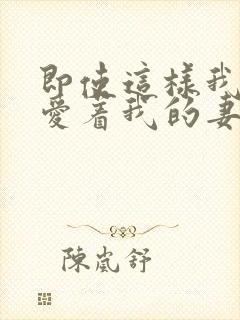 即使這樣我
愛着我的妻
陳嵐舒